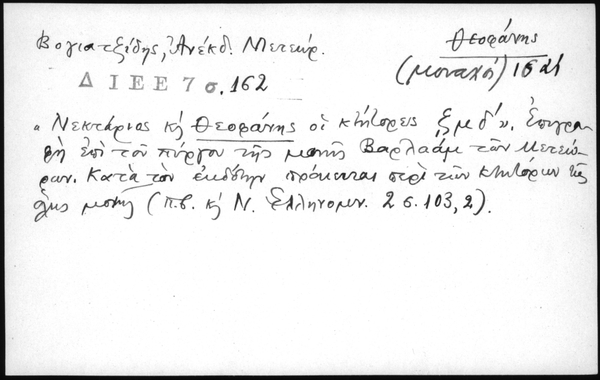 Βογιατζίδης, Ἀνέκδ. Μετεώρ.
Θεοφάνης
(μοναχός) 1521
ΔΙΕΕ 7 σ. 162
"Νεκτάριος κὴ Θεοφάνης οἱ κτήτορες ζμδ'". Ἐπιγρα-
φὴ ἐπὶ τοῦ πύργου τῆς μονῆς Βαρλαὰμ τῶν Μετεώ-
ρων. Κατὰ τὸν ἐκδότην πρόκειται περὶ τῶν κτητόρων τῆς
ὅλης μονῆς (π.β. κὴ Ν. Ἑλληνομν. 2 σ. 103, 2).